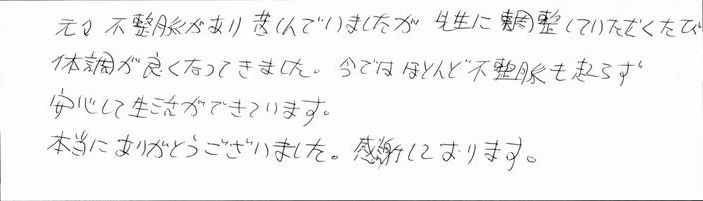 元々 不整脈があり 苦しんでいましたが 先生に 調整していただくたび
体調が良くなってきました。今では ほとんど不整脈も起らず
安心して生活ができています。
本当にありがとうございました。感謝しております。